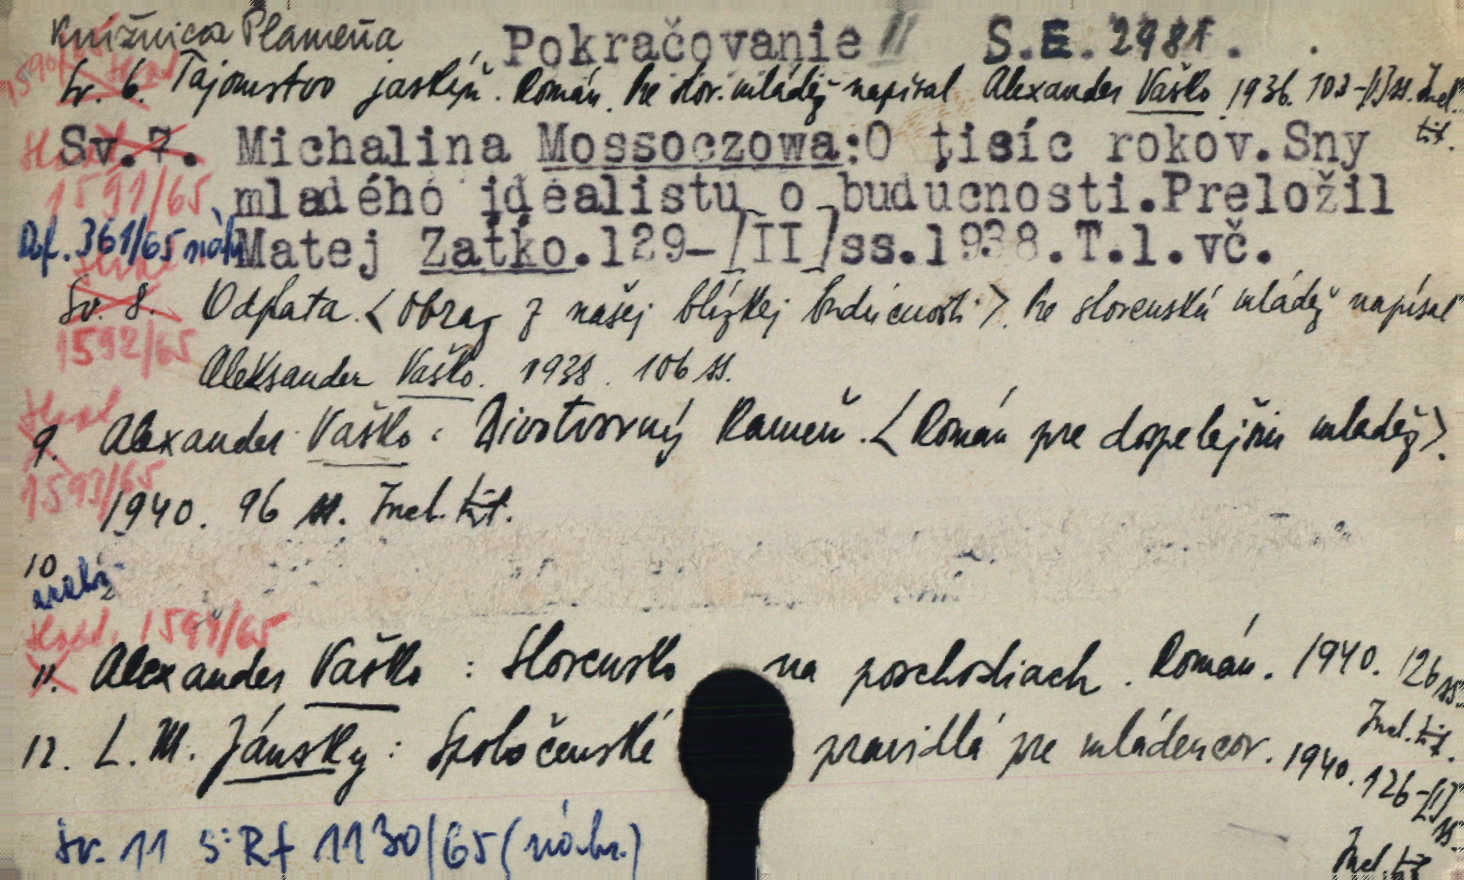 Knižnica Plameňa Pokračovanie II S.E. 2981.
Sv. 6. Tajomstvo jaskýň. Román. Pre slov. mládež napísal Alexander Vaško 1936. 103-[I] ss. Incl. tit.
Sv. 7. Michalina Mossoczowa:O tisíc rokov.Sny
1591/65 mladého idealistu o budúcnosti.Preložil
Rf. 361/65 náhr. Matej Zaťko.129-/II/ss.1938.T.l.vč.
Sv. 8. Odplata. <Obraz z našej blízkej budúcnosti>. Pre slovenskú mládež napísal
1592/65
Aleksander Vaško. 1938. 106 ss.
9. Alexander Vaško: Divotvorný kameň. <Román pre dospelejšiu mládež>.
1593/65
1940. 96 ss. Incl. tit.
10
1594/65
11. Alexander Vaško: Slovensko na poschodiach. Román. 1940. 126 ss. Incl. tit.
12. L. M. Jánsky: Spoločenské pravidlá pre mládencov. 1940. 126-[I] ss. Incl. tit.
Sv. 11 S: Rf 1130/65 (náhr.)